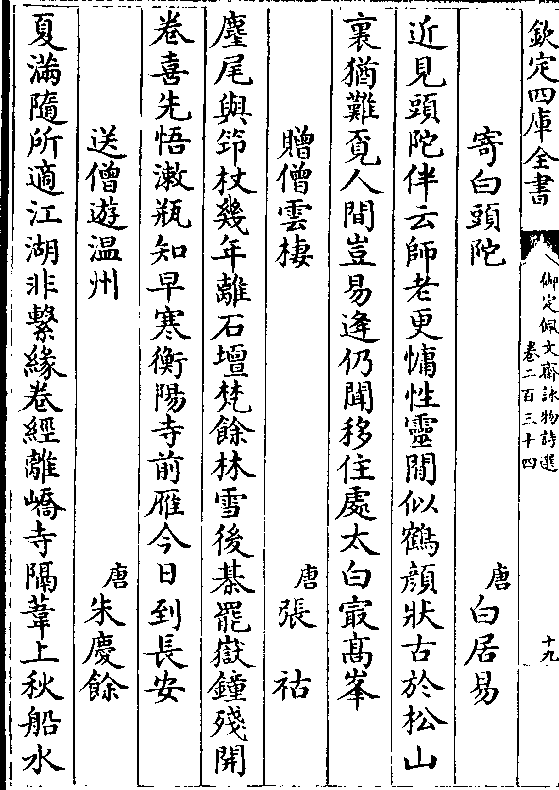 欽定四庫全書
御定佩文齋詠物詩選
卷二百三十四
十九
寄白頭陀
唐白居易
近見頭陀伴云師老更慵性靈閒似鶴顔狀古於松山
裏猶難覓人間豈易逢仍聞移住處太白㝡高峯
贈僧雲棲
唐張祜
麈尾與筇杖幾年離石壇梵餘林雪後棊罷嶽鐘殘開
卷喜先悟漱瓶知早寒衡陽寺前雁今日到長安
送僧遊温州
唐朱慶餘
夏滿隨所適江湖非繫緣卷經離嶠寺隔葦上秋船水